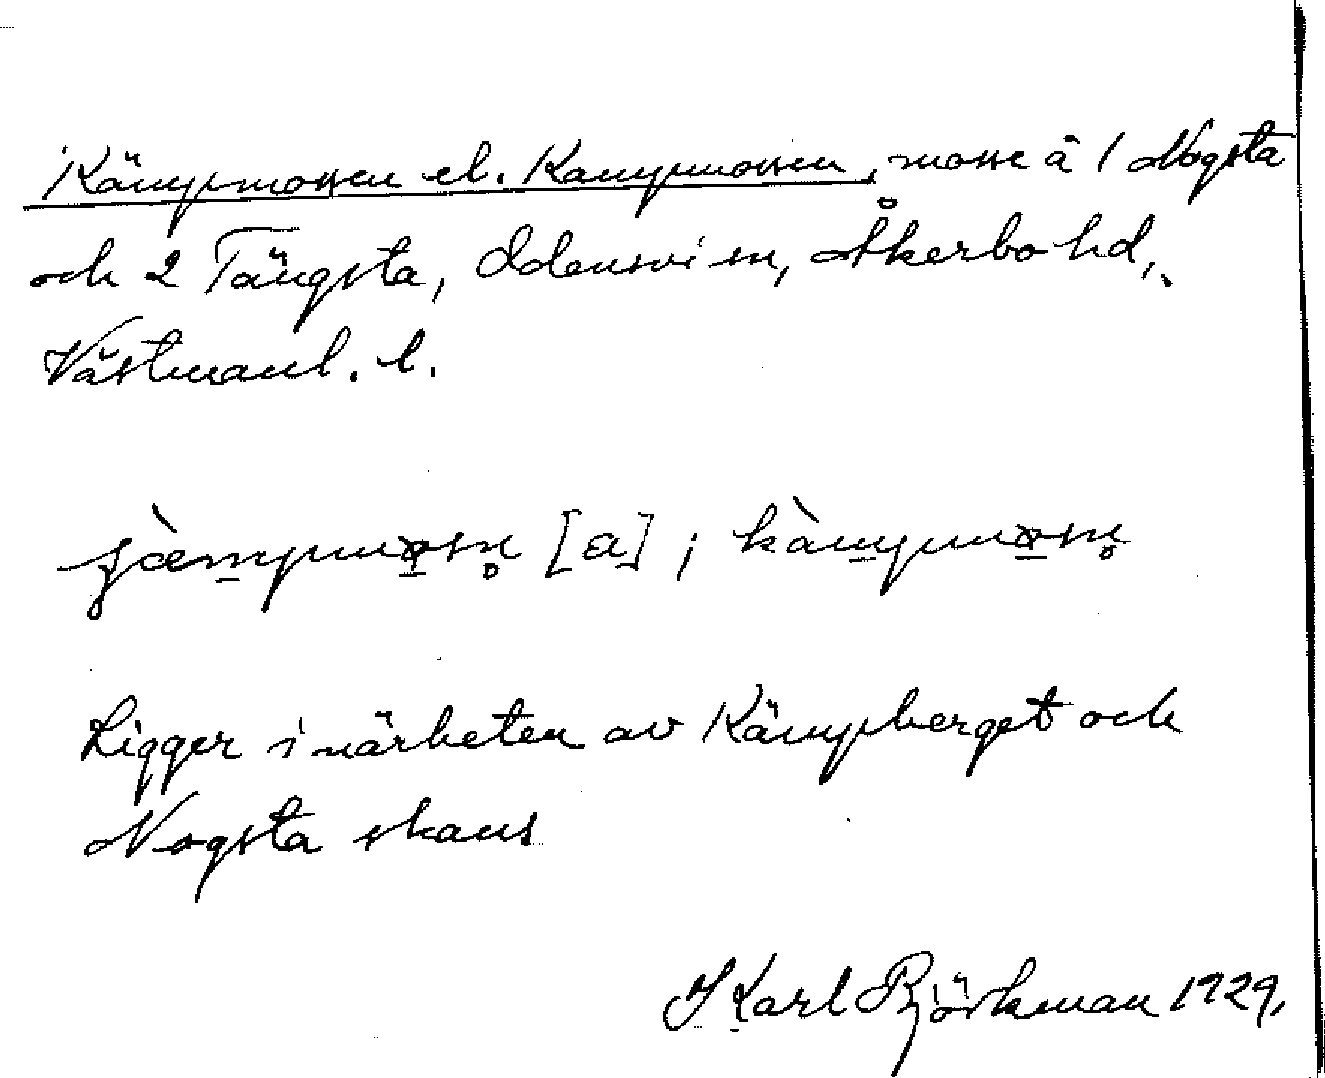 Kämpmossen el. Kampmossen, mosse å 1 Nogsta
och 2 Tängsta, Odensvi sn, Åkerbo hd,
Västmanl. l.
[a] ;
Ligger i närheten av Kämpberget och
Nogsta skans
Karl Björkman 1929.